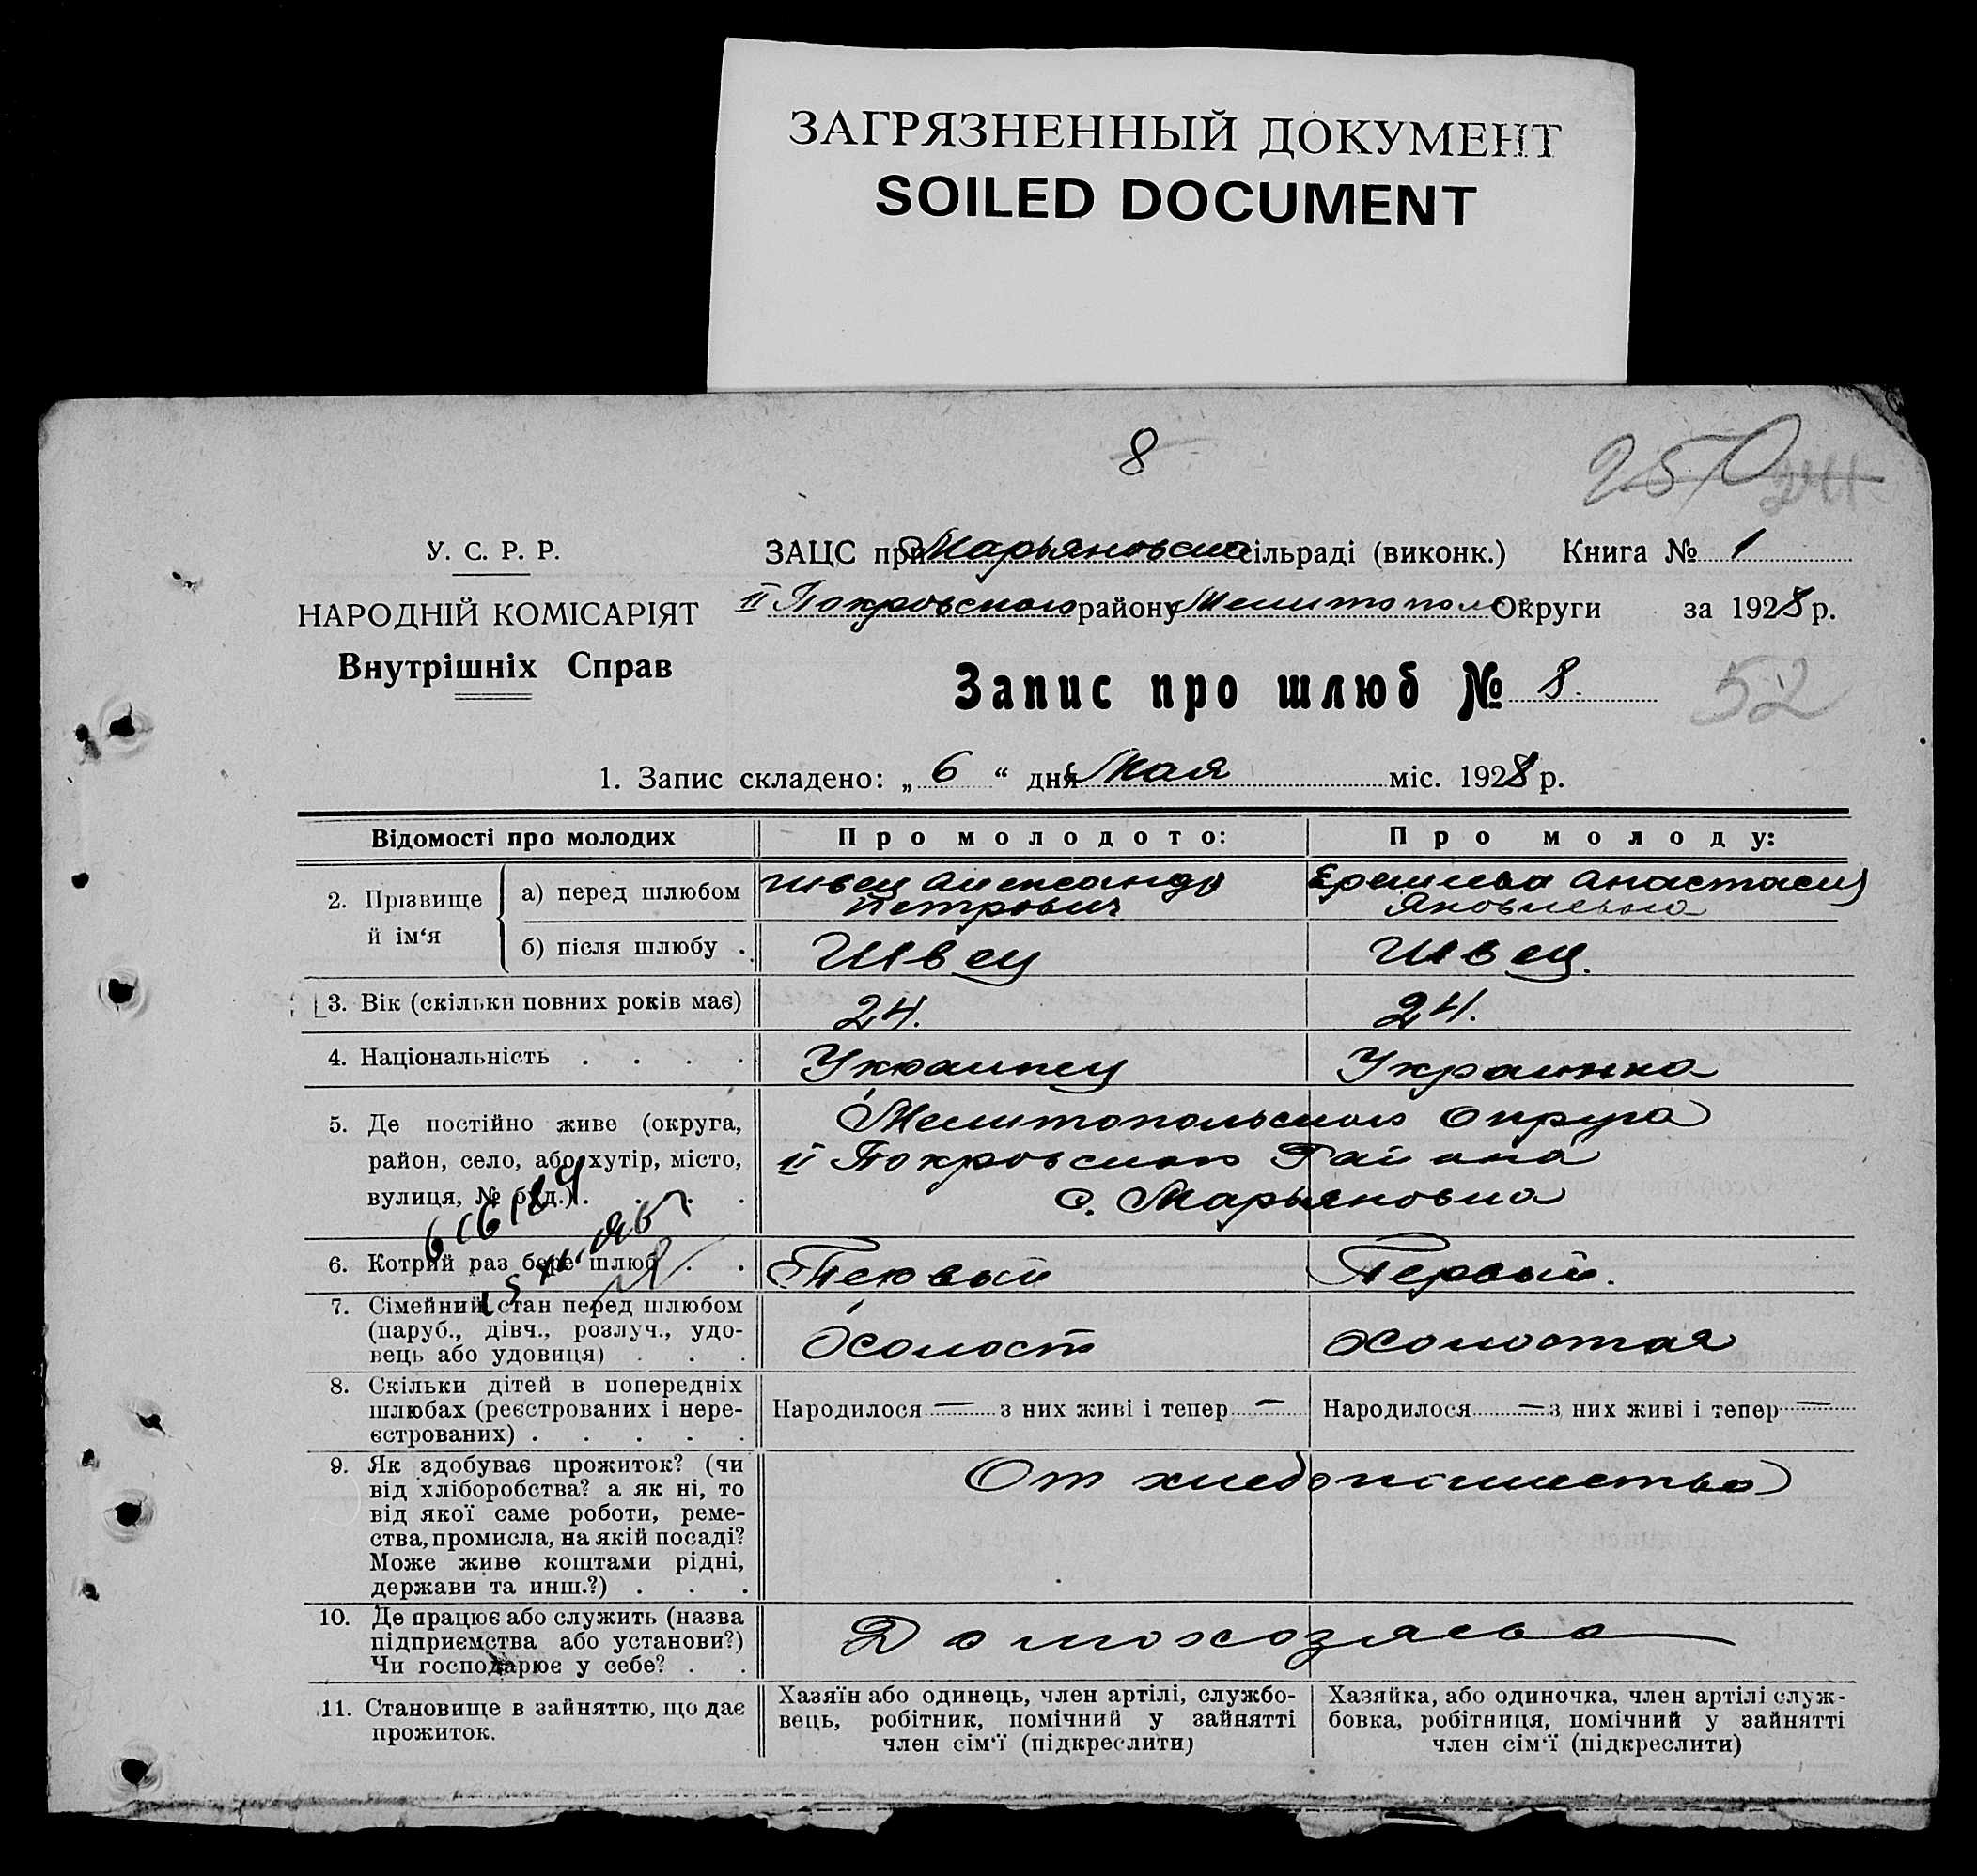 ЗАГРЯЗНЕННЫЙ ДОКУМЕНТ
SOILED DOCUMENT
8
250
24
У. С. Р. Р.
НАРОДНІЙ КОМІСАРІЯТ
Внутрішніх Справ
ЗАЦС при Марьяновской сільраді (виконк.) Книга № 1
ІІ Покровского району Мелитопол Округи за 1928 р.
Запис про шлюб № 8.
52
1. Запис складено: „ 6 “ дня Мая міс. 1928 р.
Відомості про молодих Про молодото: Про молоду:
2. Прізвище й ім‘я
а) перед шлюбом Швец Александр Петрович Анастасия Яковлевна
б) після шлюбу . Швец Швец.
3. Вік (скільки повних років має) 24. 24.
4. Національність . . . . Украинец Украинка
5. Де постійно живе (округа, Мелитопольского округа
район, село, або хутір, місто, ІІ Покровского Района
вулиця, № буд.) . . . . с. Марьяновка
6. Котрий раз бере шлюб . . Первый Первый.
7. Сімейний стан перед шлюбом
(паруб., дівч., розлуч., удо-
вець або удовиця) . . . Холост холостая
8. Скільки дітей в попередніх
шлюбах (реєстрованих і нере-
єстрованих) . . . . .
Народилося — з них живі і тепер — Народилося — з них живі і тепер —
9. Як здобуває прожиток? (чи От хлебопашества
від хліборобства? а як ні, то
від якої саме роботи, реме-
ства, промисла, на якій посаді?
Може живе коштами рідні,
держави та инш.?) . . .
10. Де працює або служить (назва
підприємства або установи?)
Чи господарює у себе? . .
Домохозяева
11. Становище в зайняттю, що дає
прожиток.
Хазяїн або одинець, член артілі, службо-
вець, робітник, помічний у зайнятті
член сім‘ї (підкреслити)
Хазяйка, або одиночка, член артілі служ-
бовка, робітниця, помічний у зайнятті
член сім‘ї (підкреслити)